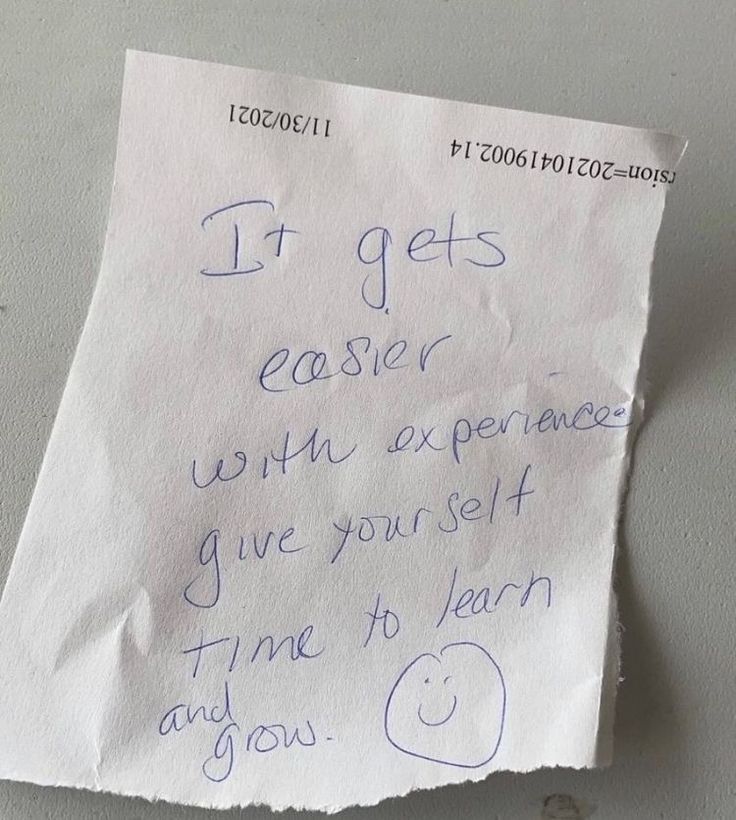 11/30/2021
rsion=20210419002.14
It gets
easier
with experience
give yourself
time to learn
and
grow.